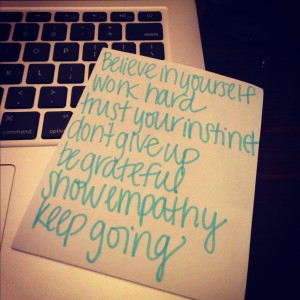 Believe in yourself
work hard
trust your instinct
don't give up
be grateful
show empathy
keep going
command